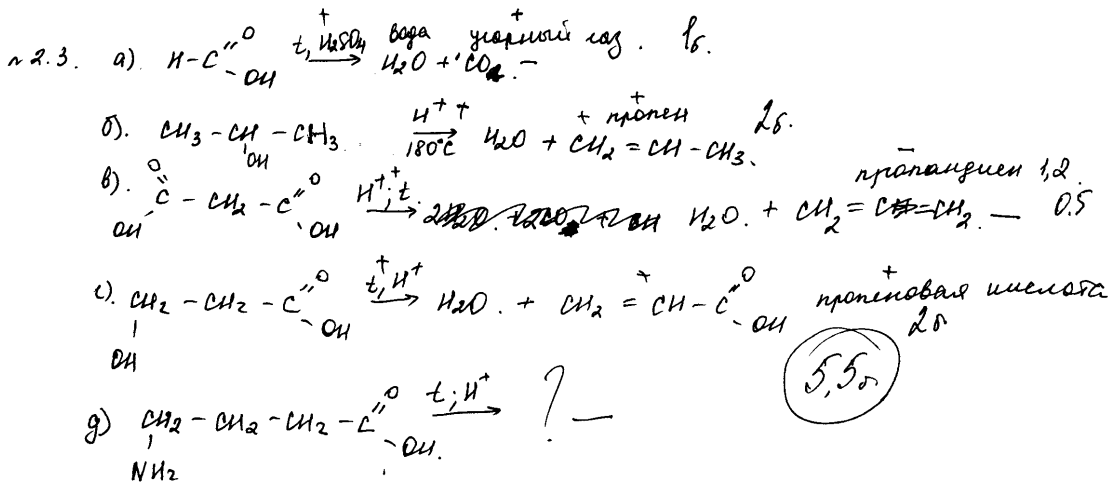 + +
№2.3. а). H-C=O -OH t, H2SO4 → вода H2O + CO - угарный газ. 1б.
б). CH3-CH-CH3 OH H+ + 180°C → H2O + + CH2=CH-CH3. + пропен 2б.
в). O=C-CH2-C=O OH -OH H+; t. + → H2O. + CH2=C=CH2. — пропандиен 1,2. — 0.5
с). CH2-CH2-C=O OH -OH t, H+ + → H2O. + CH2=CH-C=O -OH + пропеновая кислота + 2б
5,5б
д) CH2-CH2-CH2-C=O NH2 -OH. t; H+ → ? —